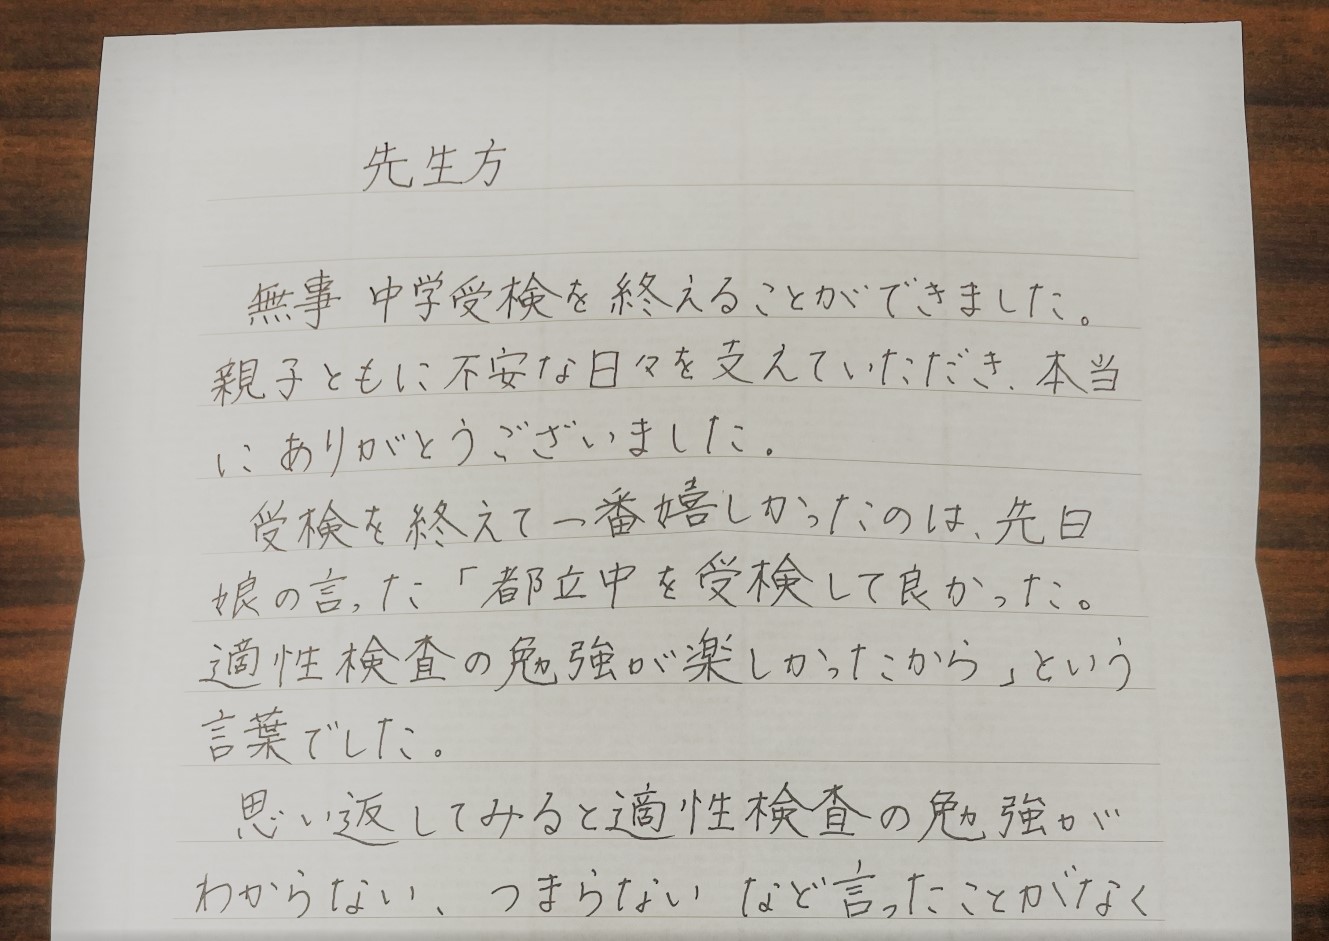 先生方
無事 中学受検を終えることができました。
親子ともに不安な日々を支えていただき、本当
にありがとうございました。
受検を終えて一番嬉しかったのは、先日
娘の言った「都立中を受検して良かった。
適性検査の勉強が楽しかったから」という
言葉でした。
思い返してみると適性検査の勉強が
わからない、つまらない など言ったことがなく